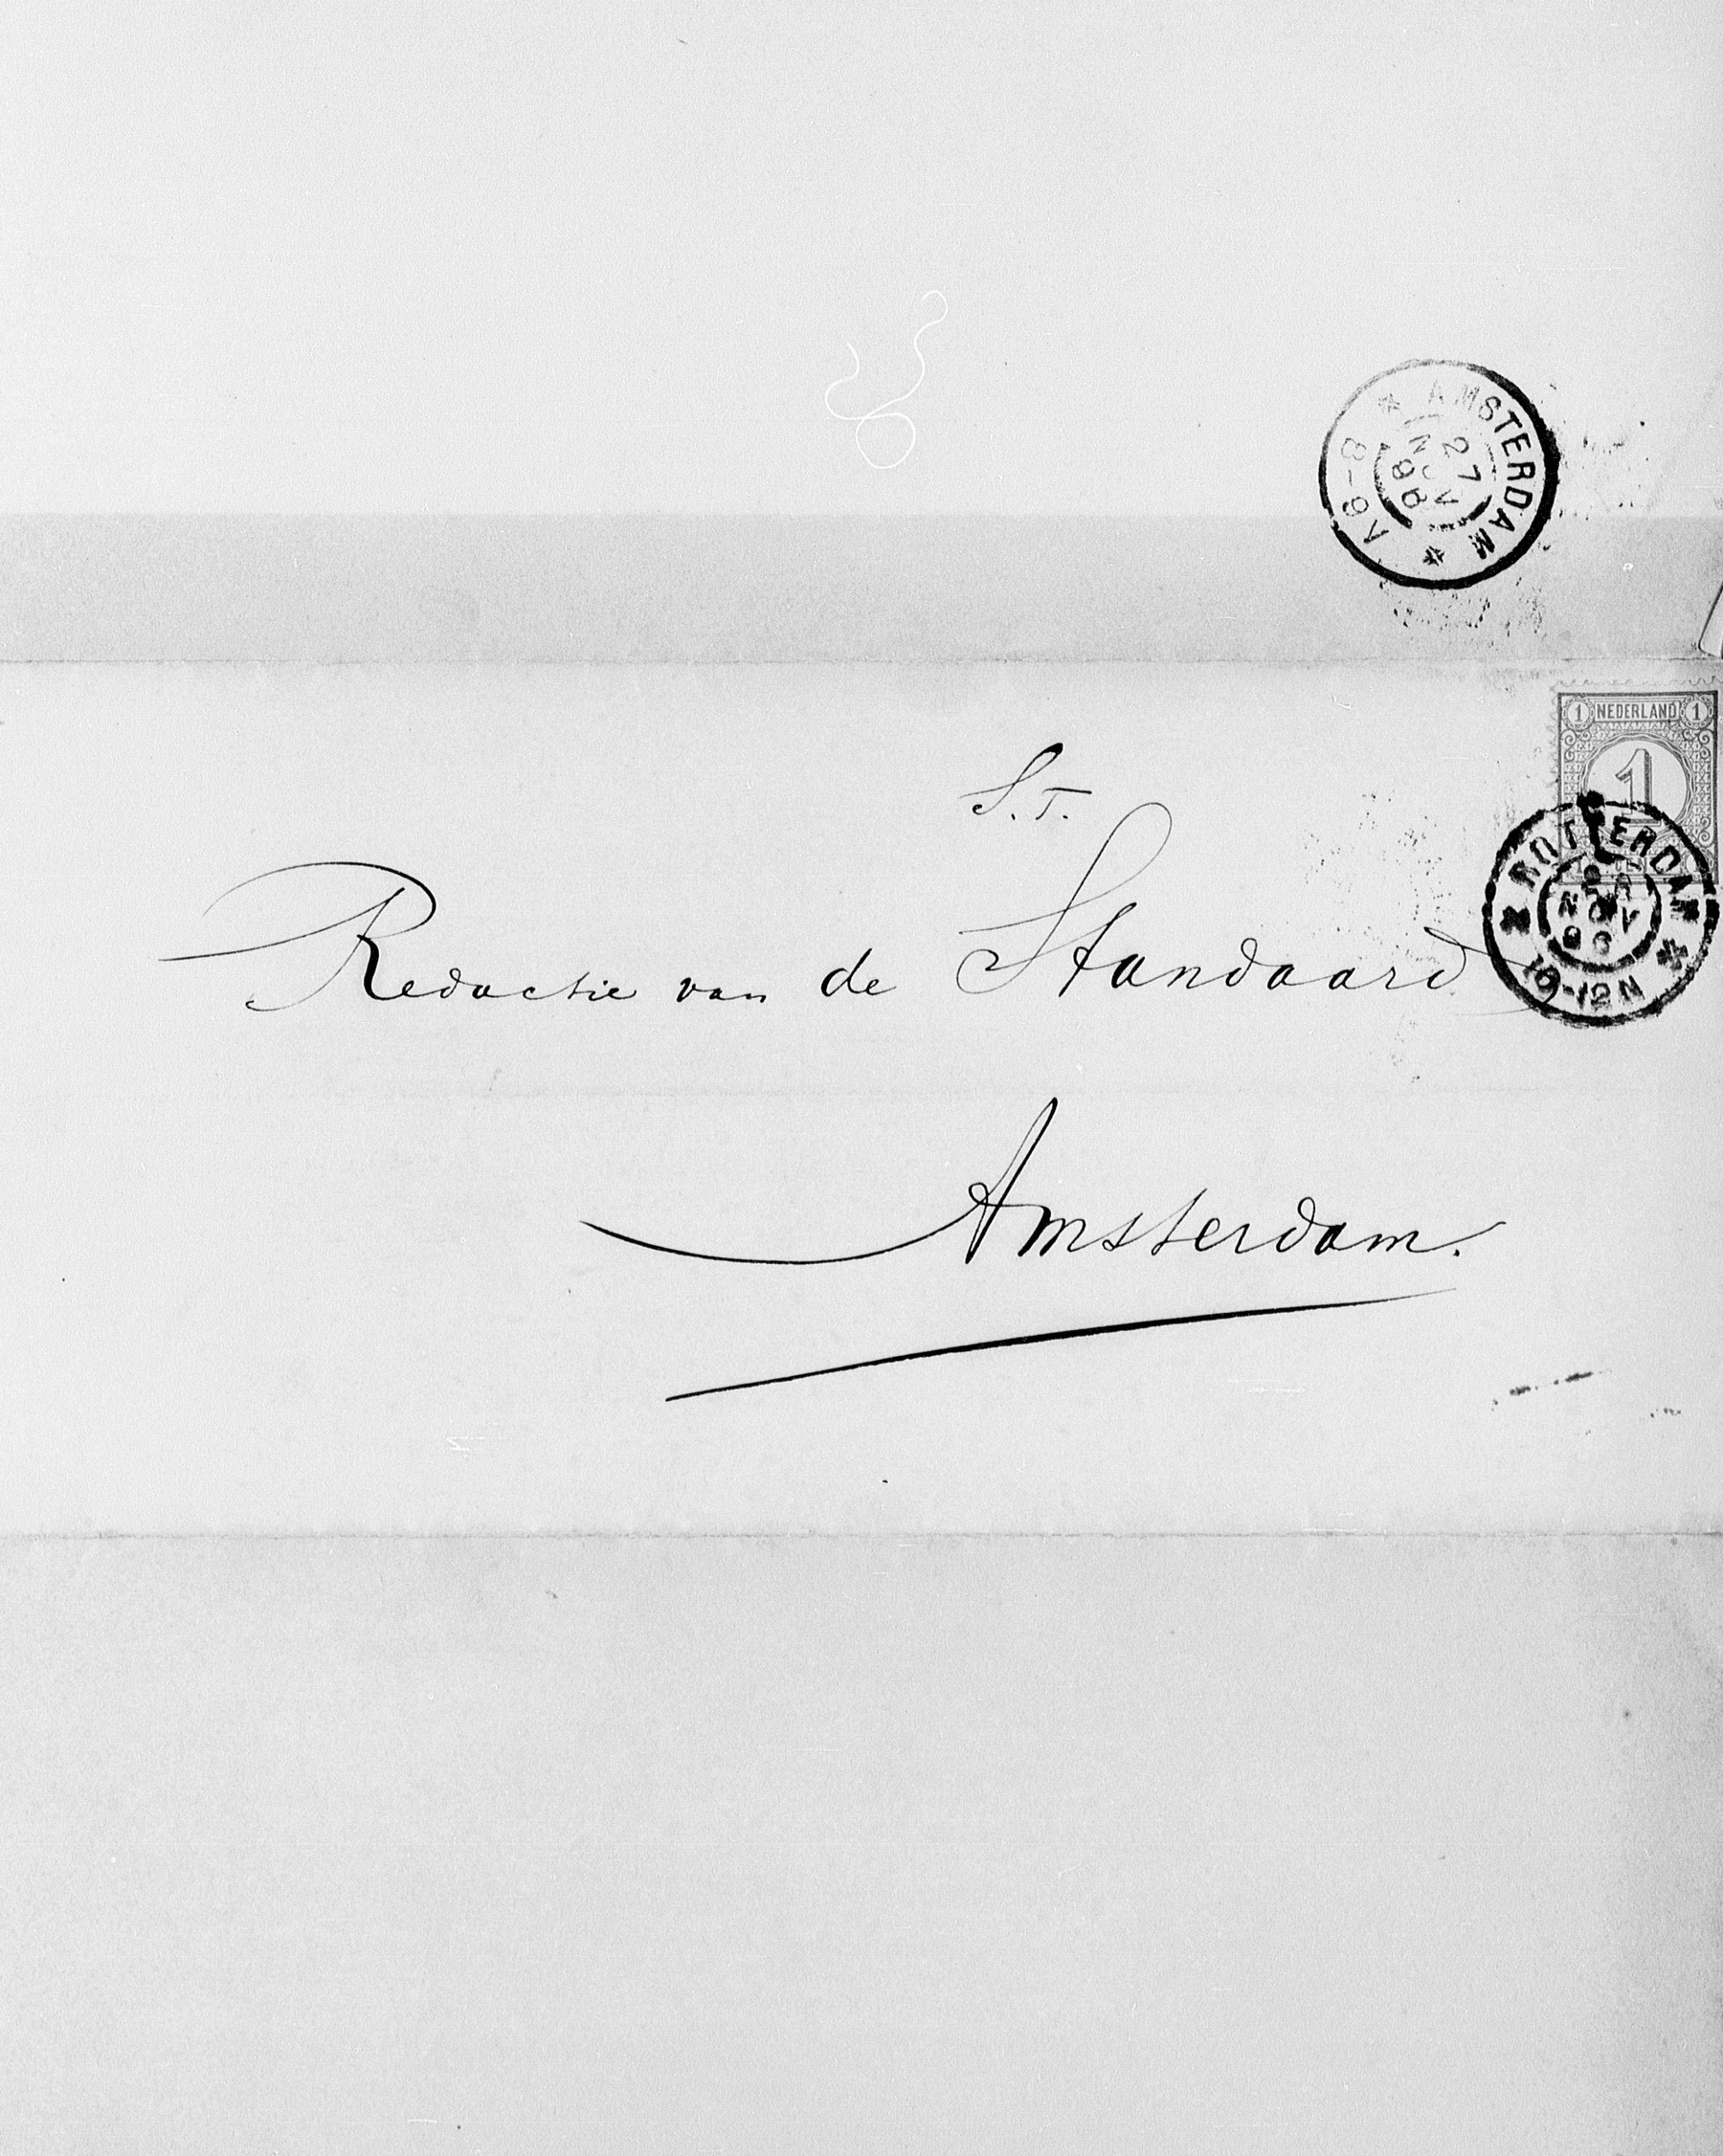 AMSTERDAM
27
NOV
96
8-9V
1 NEDERLAND 1
1
ROTTERDAM
NOV
96
10-12N
S.T.
Redactie van de Standaard
Amsterdam.